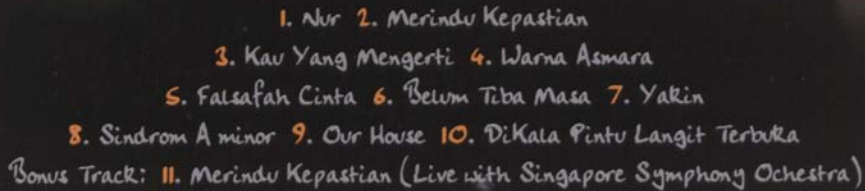 1. Nur 2. Merindu Kepastian
3. Kau Yang Mengerti 4. Warna Asmara
5. Falsafah Cinta 6. Belum Tiba Masa 7. Yakin
8. Sindrom A minor 9. Our House 10. DiKala Pintu Langit Terbuka
Bonus Track: 11. Merindu Kepastian (Live with Singapore Symphony Ochestra)